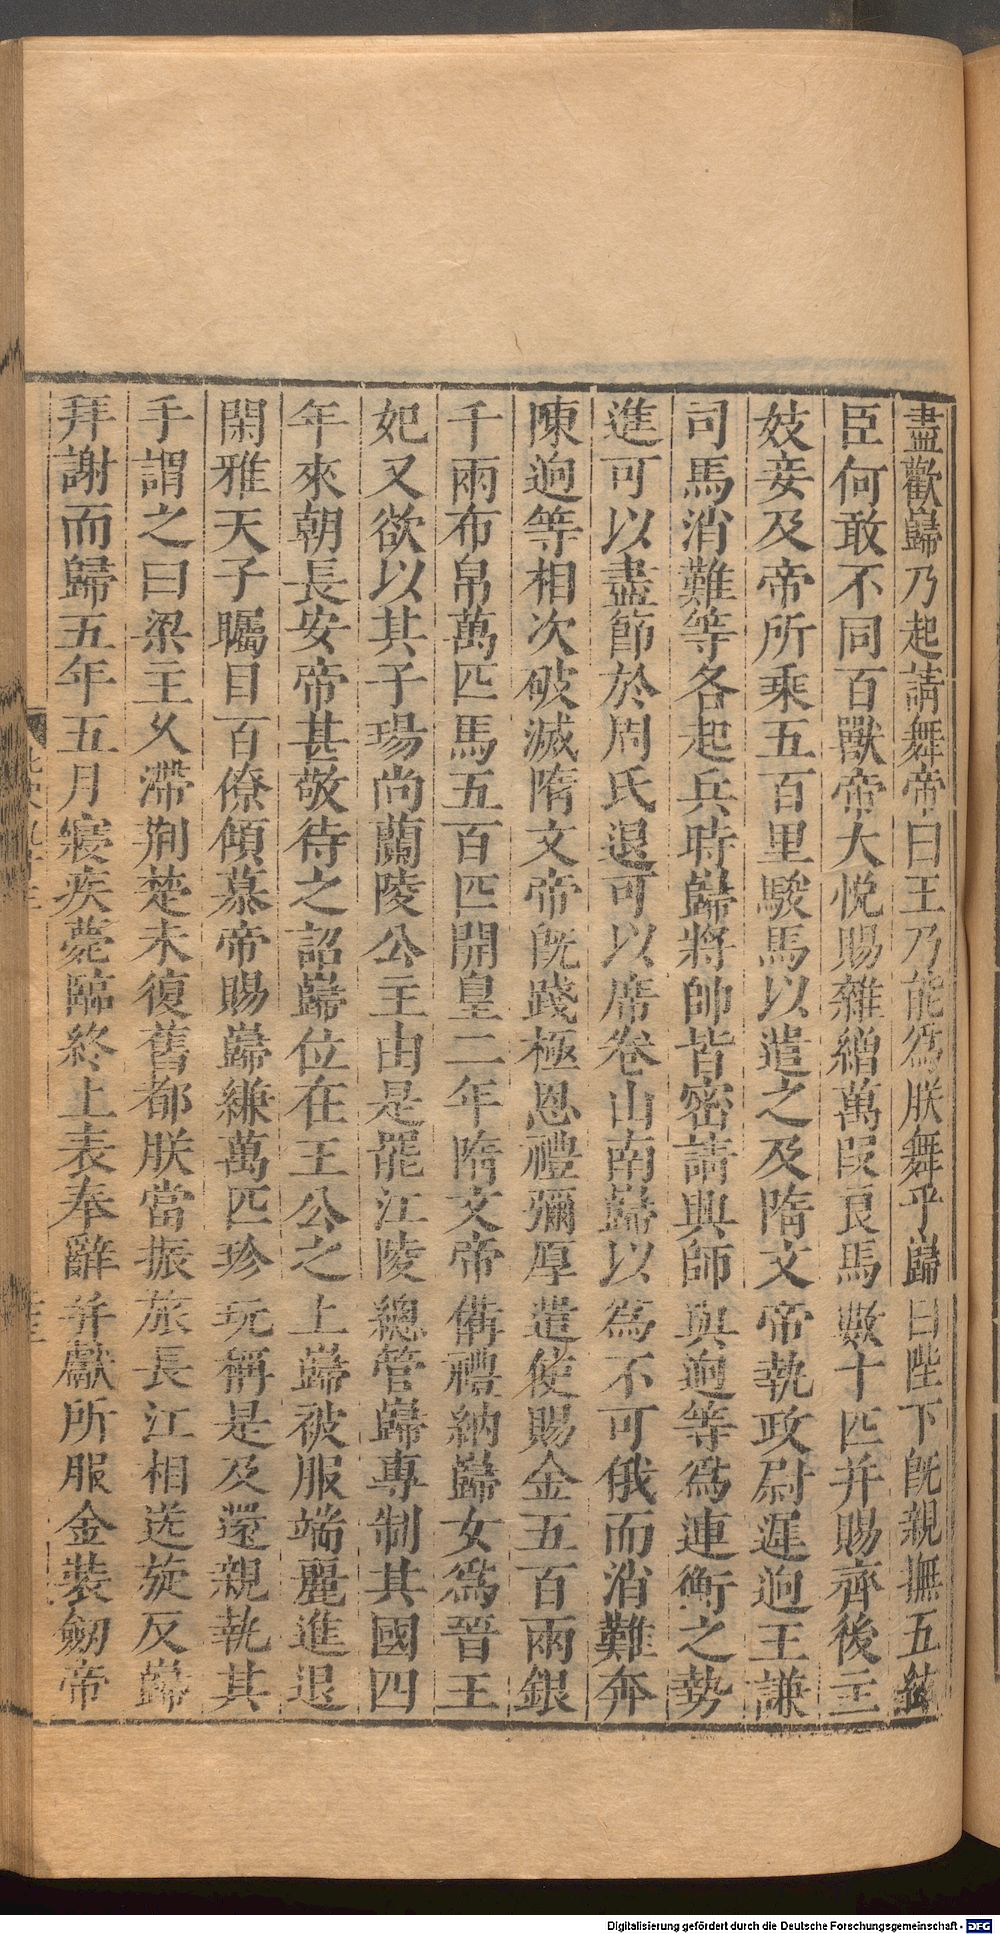 盡歡歸乃起請舞帝曰王乃能爲朕舞乎歸曰陛下旣親撫五絃
臣何敢不同百獸帝大悅賜雜繒萬段良馬數十匹并賜齊後主
妓妾及帝所乘五百里駿馬以遣之及隋文帝執政尉遲逈王謙
司馬消難等各起兵時歸將帥皆密請興師與逈等爲連衡之勢
進可以盡節於周氏退可以席卷山南歸以爲不可俄而消難奔
陳逈等相次破滅隋文帝旣踐極恩禮彌厚遣使賜金五百兩銀
千兩布帛萬匹馬五百匹開皇二年隋文帝備禮納歸女爲晉王
妃又欲以其子瑒尚蘭陵公主由是罷江陵總管歸專制其國四
年來朝長安帝甚敬待之詔歸位在王公之上歸被服端麗進退
閑雅天子矚目百僚傾慕帝賜歸縑萬匹珍玩稱是及還親執其
手謂之曰梁主久滯荊楚未復舊都朕當振旅長江相送旋反歸
拜謝而歸五年五月寢疾薨臨終上表奉辭并獻所服金裝劒帝
Digitalisierung gefördert durch die Deutsche Forschungsgemeinschaft - DFG